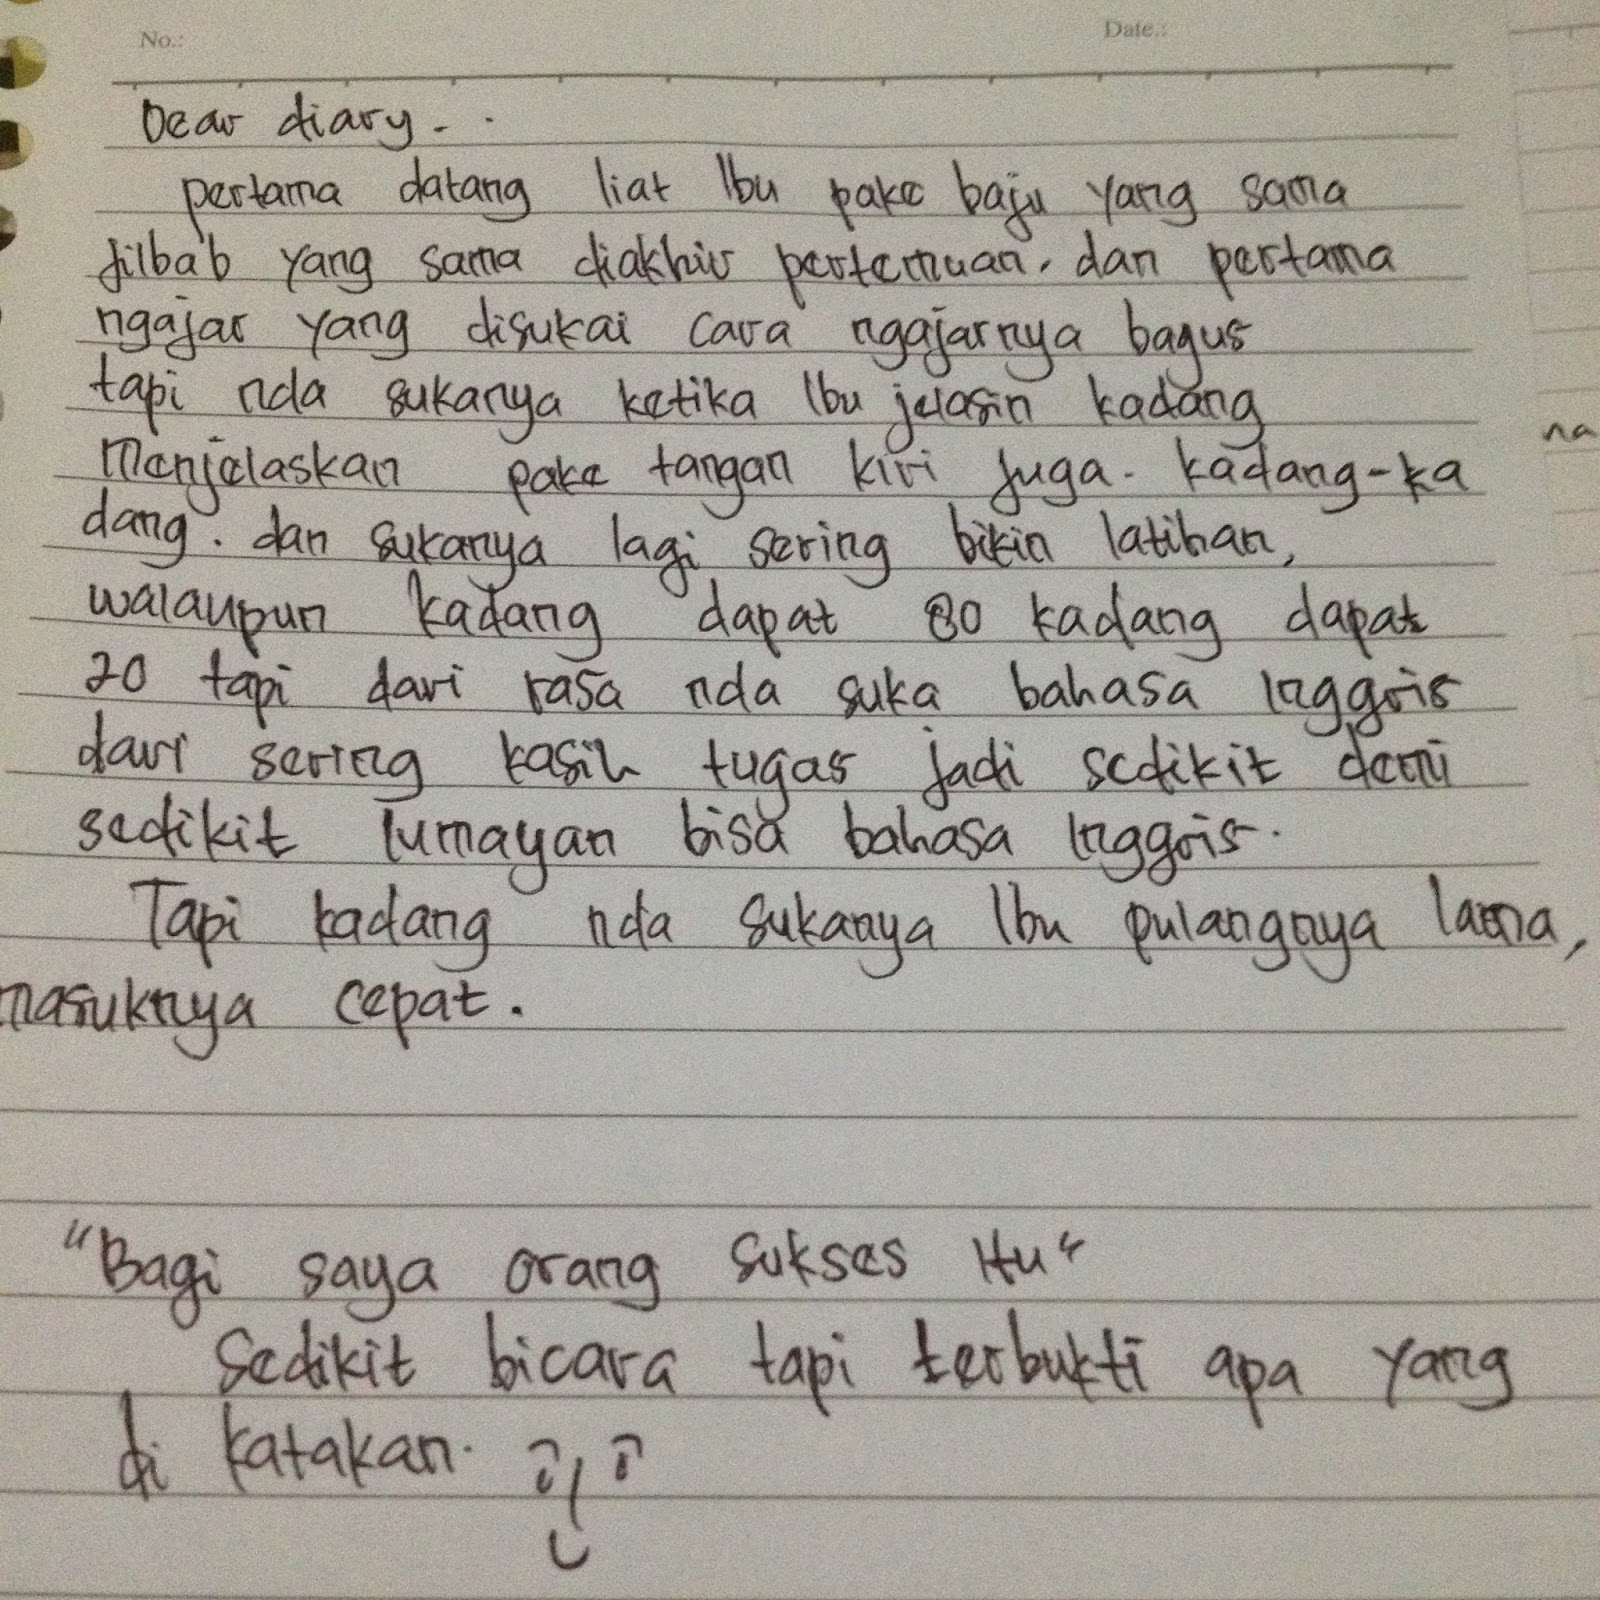 No.:
Date.:
Dear diary - .
pertama datang liat Ibu pake baju yang sama
jilbab yang sama diakhir pertemuan. dan pertama
ngajar yang disukai cara ngajarnya bagus
tapi nda sukanya ketika Ibu jelasin kadang
menjelaskan pake tangan kiri juga. kadang-ka
dang. dan sukanya lagi sering bikin latihan,
walaupun kadang dapat 80 kadang dapat
20 tapi dari rasa nda suka bahasa Inggris
dari sering kasih tugas jadi sedikit demi
sedikit lumayan bisa bahasa Inggris.
Tapi kadang nda sukanya Ibu pulangnya lama,
masuknya cepat.
"Bagi saya orang sukses itu"
Sedikit bicara tapi terbukti apa yang
di katakan.
na